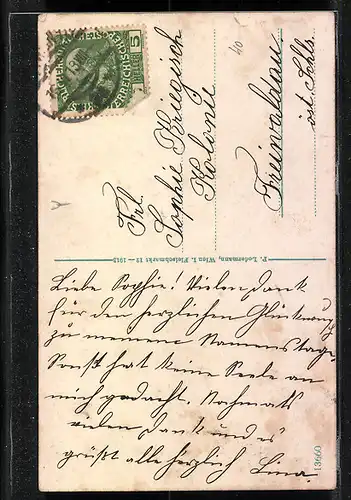 5
HELLER
Frl.
Sophie Kriegisch
Kolonie
Freiwaldau
öst. Schls.
40
P. Ledermann, Wien I. Fleischmarkt 12 — 1912
Liebe Sophie! Vielen Dank
für den herzlichen Glückwunsch
zu meinem Namenstage.
Sonst hat keine Seele an
mich gedacht. Nochmals
vielen Dank und es
grüßt alle herzlich Lina.
13660